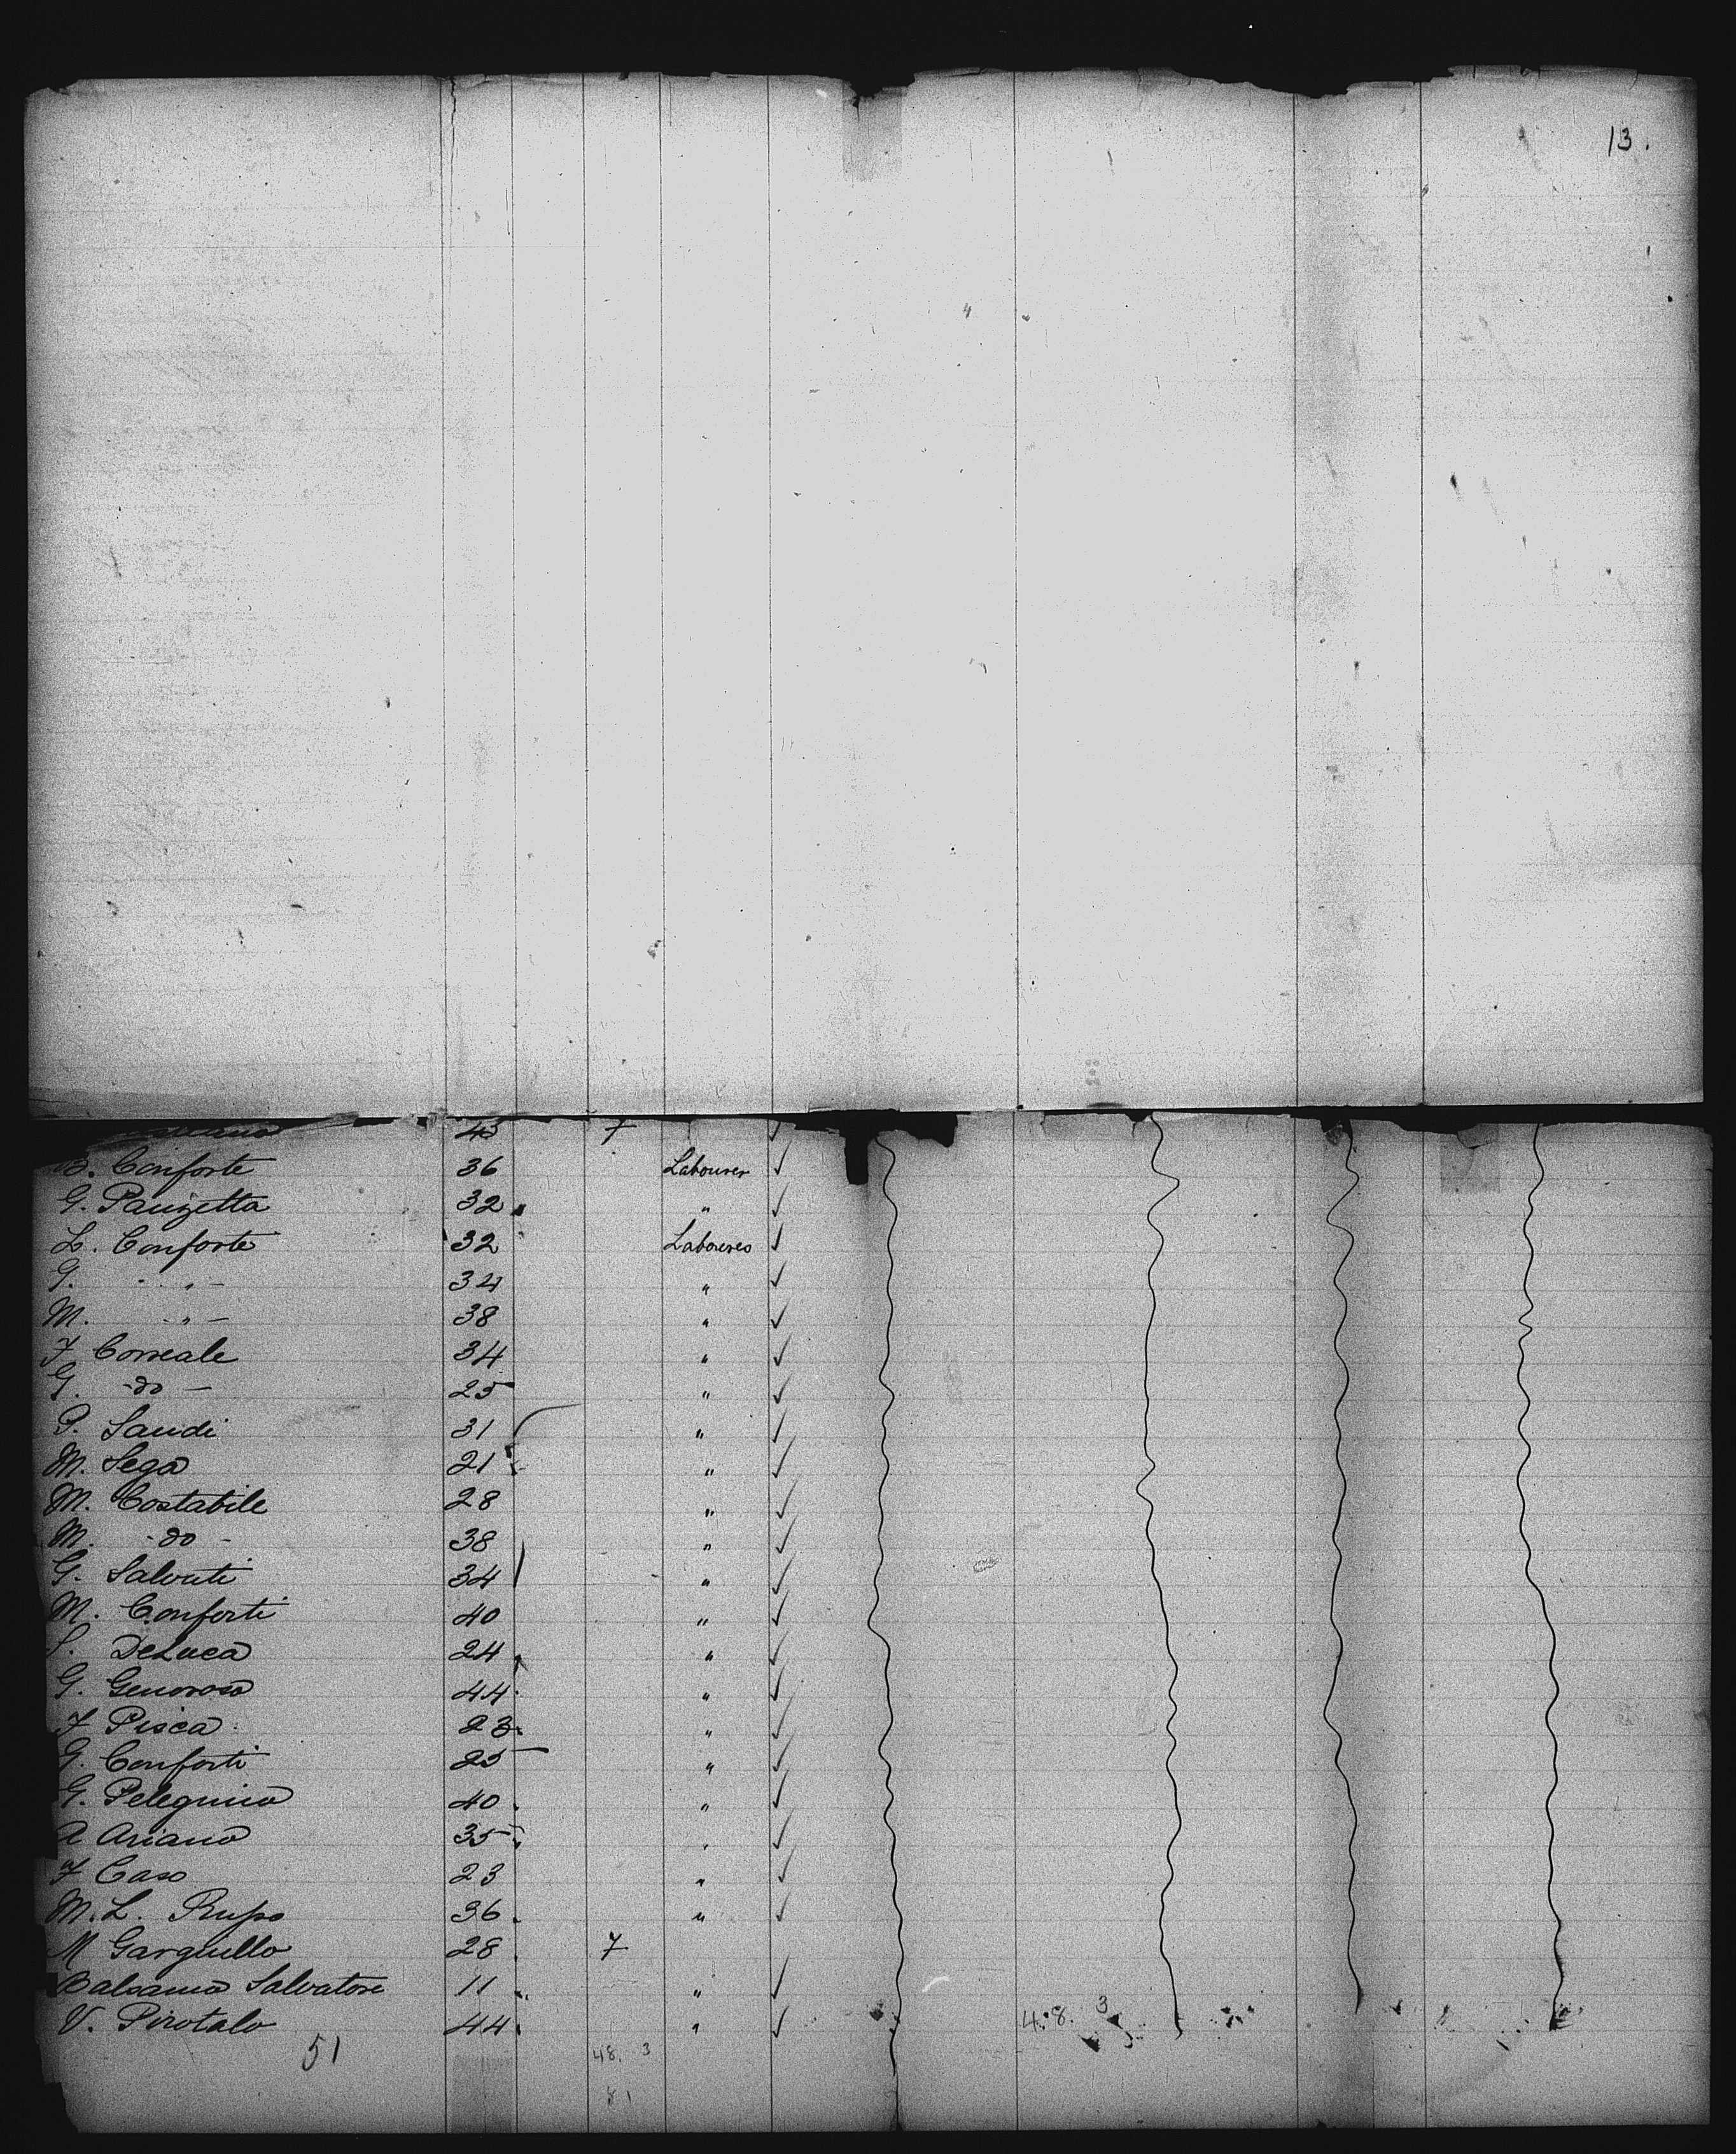 13.
43 7 ✓
B. Conforte 36 Labourer ✓
G. Panzetta 32 " ✓
L. Conforte 32 Labourer ✓
G. - " - 34 " ✓
M. - " - 38 " ✓
F Correale 34 " ✓
G. - do - 25 " ✓
P. Saudi 31 " ✓
M. Sega 21 " ✓
M. Costabile 28 " ✓
M. - do - 38 " ✓
G. Salvuti 34 " ✓
M. Conforti 40 " ✓
S. DeLuca 24 " ✓
G. Genoroso 44 " ✓
F Pisca 23 " ✓
G. Conforti 25 " ✓
G. Pelegrino 40 " ✓
A Ariano 35 " ✓
F Caso 23 " ✓
M. L. Rupo 36 " ✓
M Gargullo 28 7
Balsamo Salvatore 11 " ✓
V. Pirotalo 44 " ✓ 48. 3
51 48. 3